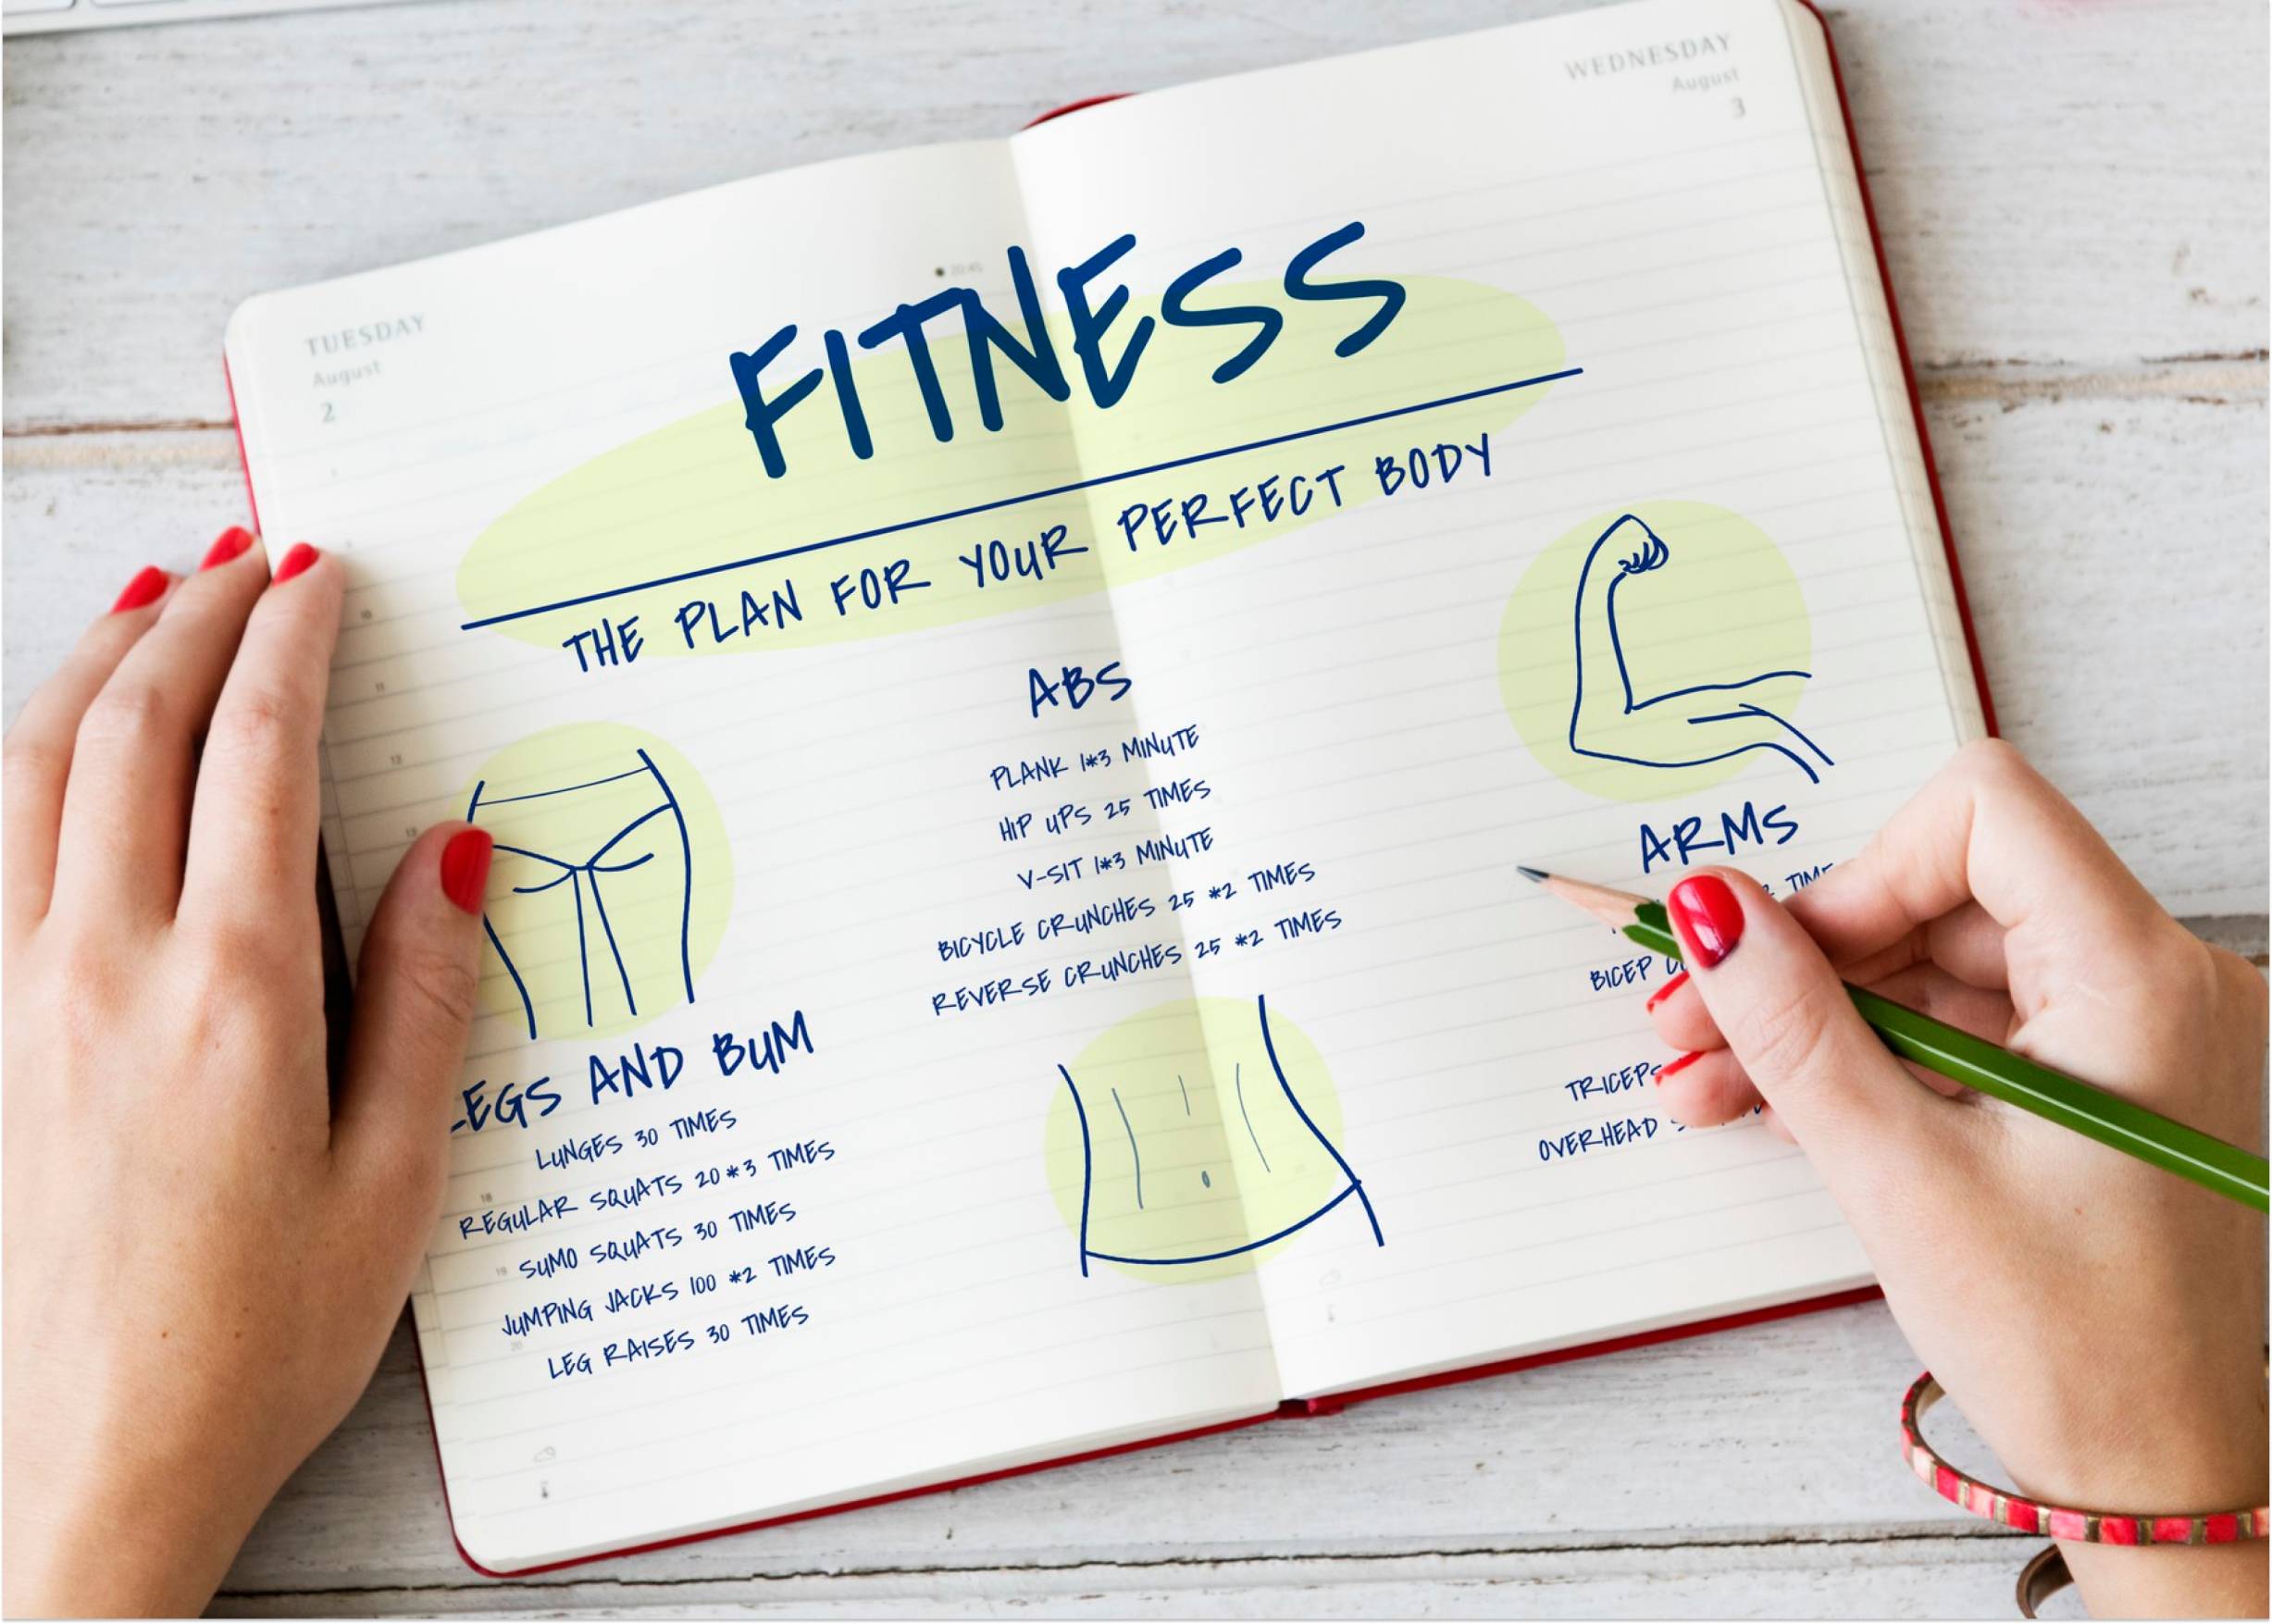 TUESDAY
August
2
WEDNESDAY
August
3
20:45
FITNESS
THE PLAN FOR YOUR PERFECT BODY
LEGS AND BUM
LUNGES 30 TIMES
REGULAR SQUATS 20*3 TIMES
SUMO SQUATS 30 TIMES
JUMPING JACKS 100 *2 TIMES
LEG RAISES 30 TIMES
ABS
PLANK 1*3 MINUTE
HIP UPS 25 TIMES
V-SIT 1*3 MINUTE
BICYCLE CRUNCHES 25 *2 TIMES
REVERSE CRUNCHES 25 *2 TIMES
ARMS
BICEP
TRICEPS
OVERHEAD